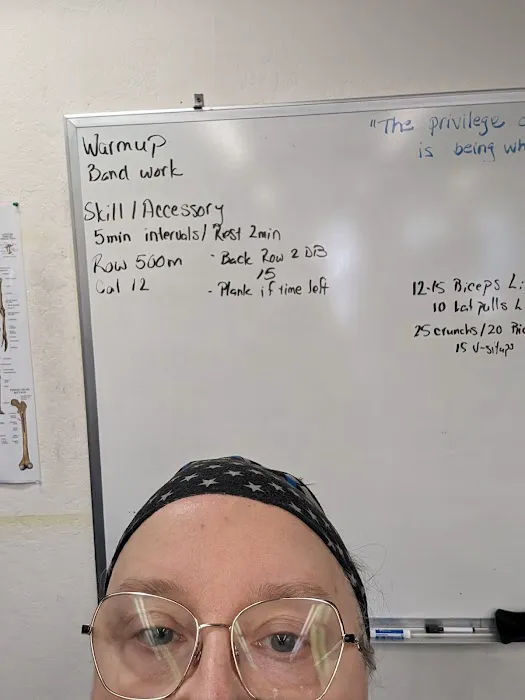 Warmup
Band work
Skill / Accessory
5min intervals / Rest 2min
Row 500m - Back Row 2 DB
15
Cal 12 - Plank if time left
"The privilege
is being
12-15 Biceps
10 Lat pulls
25 crunchs/20
15 V-situps